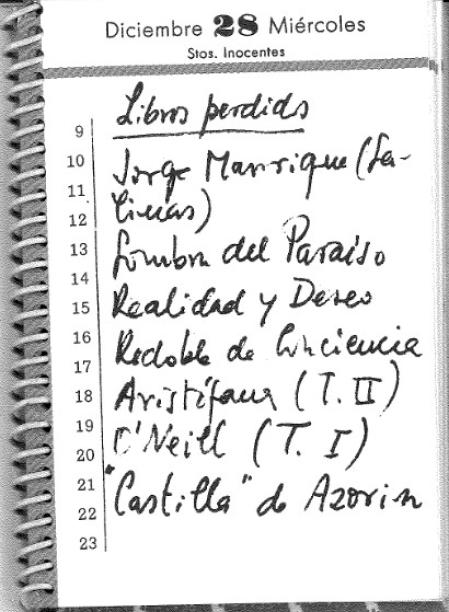 Diciembre 28 Miércoles
Stos. Inocentes
Libros perdidos
9
10
Jorge Manrique (Sa-
11
linas)
12
Sombra del Paraiso
13
14
Realidad y Deseo
15
16
Redoble de Conciencia
17
Aristófanes (T. II)
18
19
O'Neill (T. I)
20
21
"Castilla" de Azorin
22
23